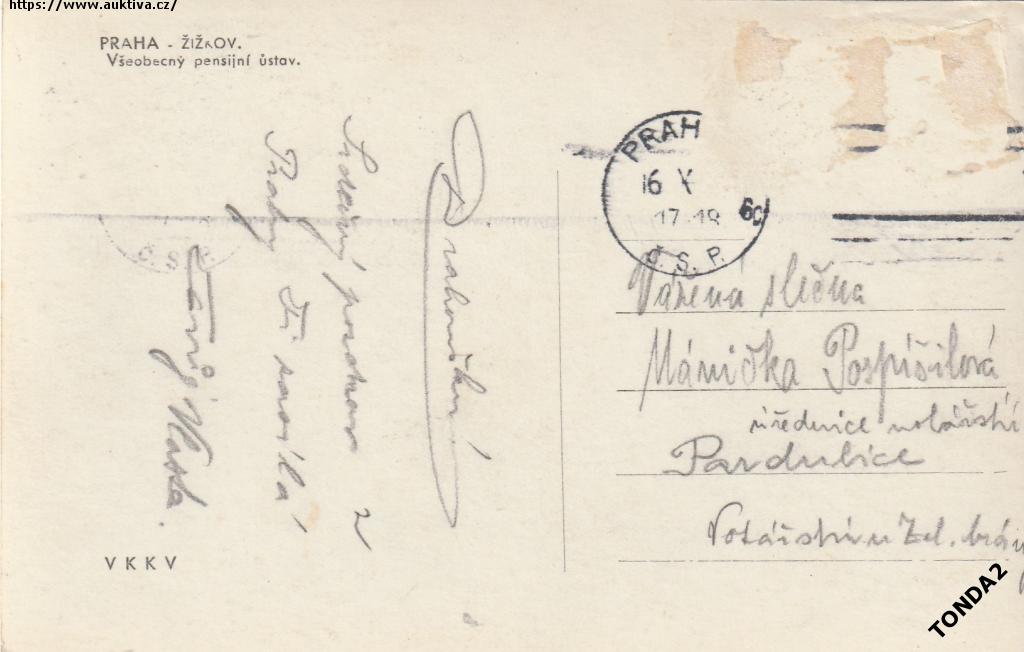 https://www.auktiva.cz/
PRAHA - ŽIŽKOV.
Všeobecný pensijní ústav.
Drahoušku
Srdečný pozdrav z
Prahy Ti zasílá
Vlasta.
VKKV
PRAH
16 X
17-18
6c
Č.S.P.
Č.S.P.
Vážená slečna
Mánička Pospíšilová
úřednice notářství
Pardubice
Notářství u Zel. brány
TONDA2